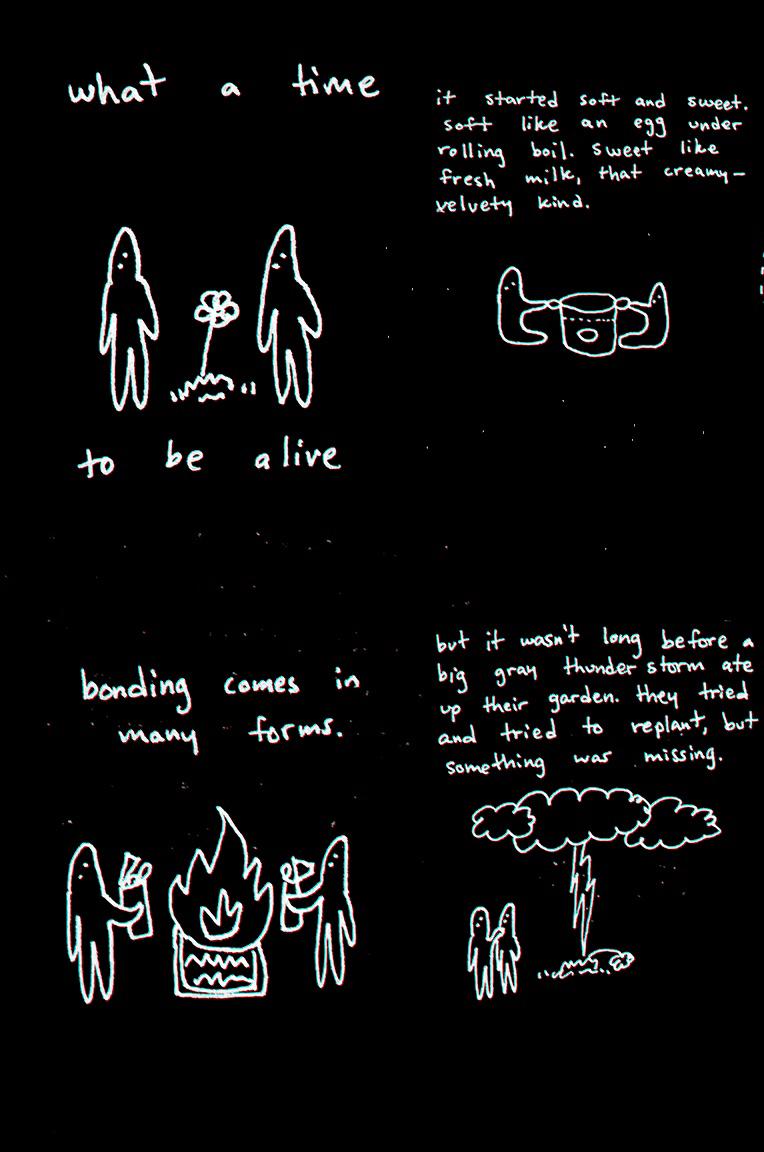 what a time
to be alive
it started soft and sweet.
soft like an egg under
rolling boil. sweet like
fresh milk, that creamy-
velvety kind.
bonding comes in
many forms.
but it wasn't long before a
big gray thunder storm ate
up their garden. they tried
and tried to replant, but
something was missing.